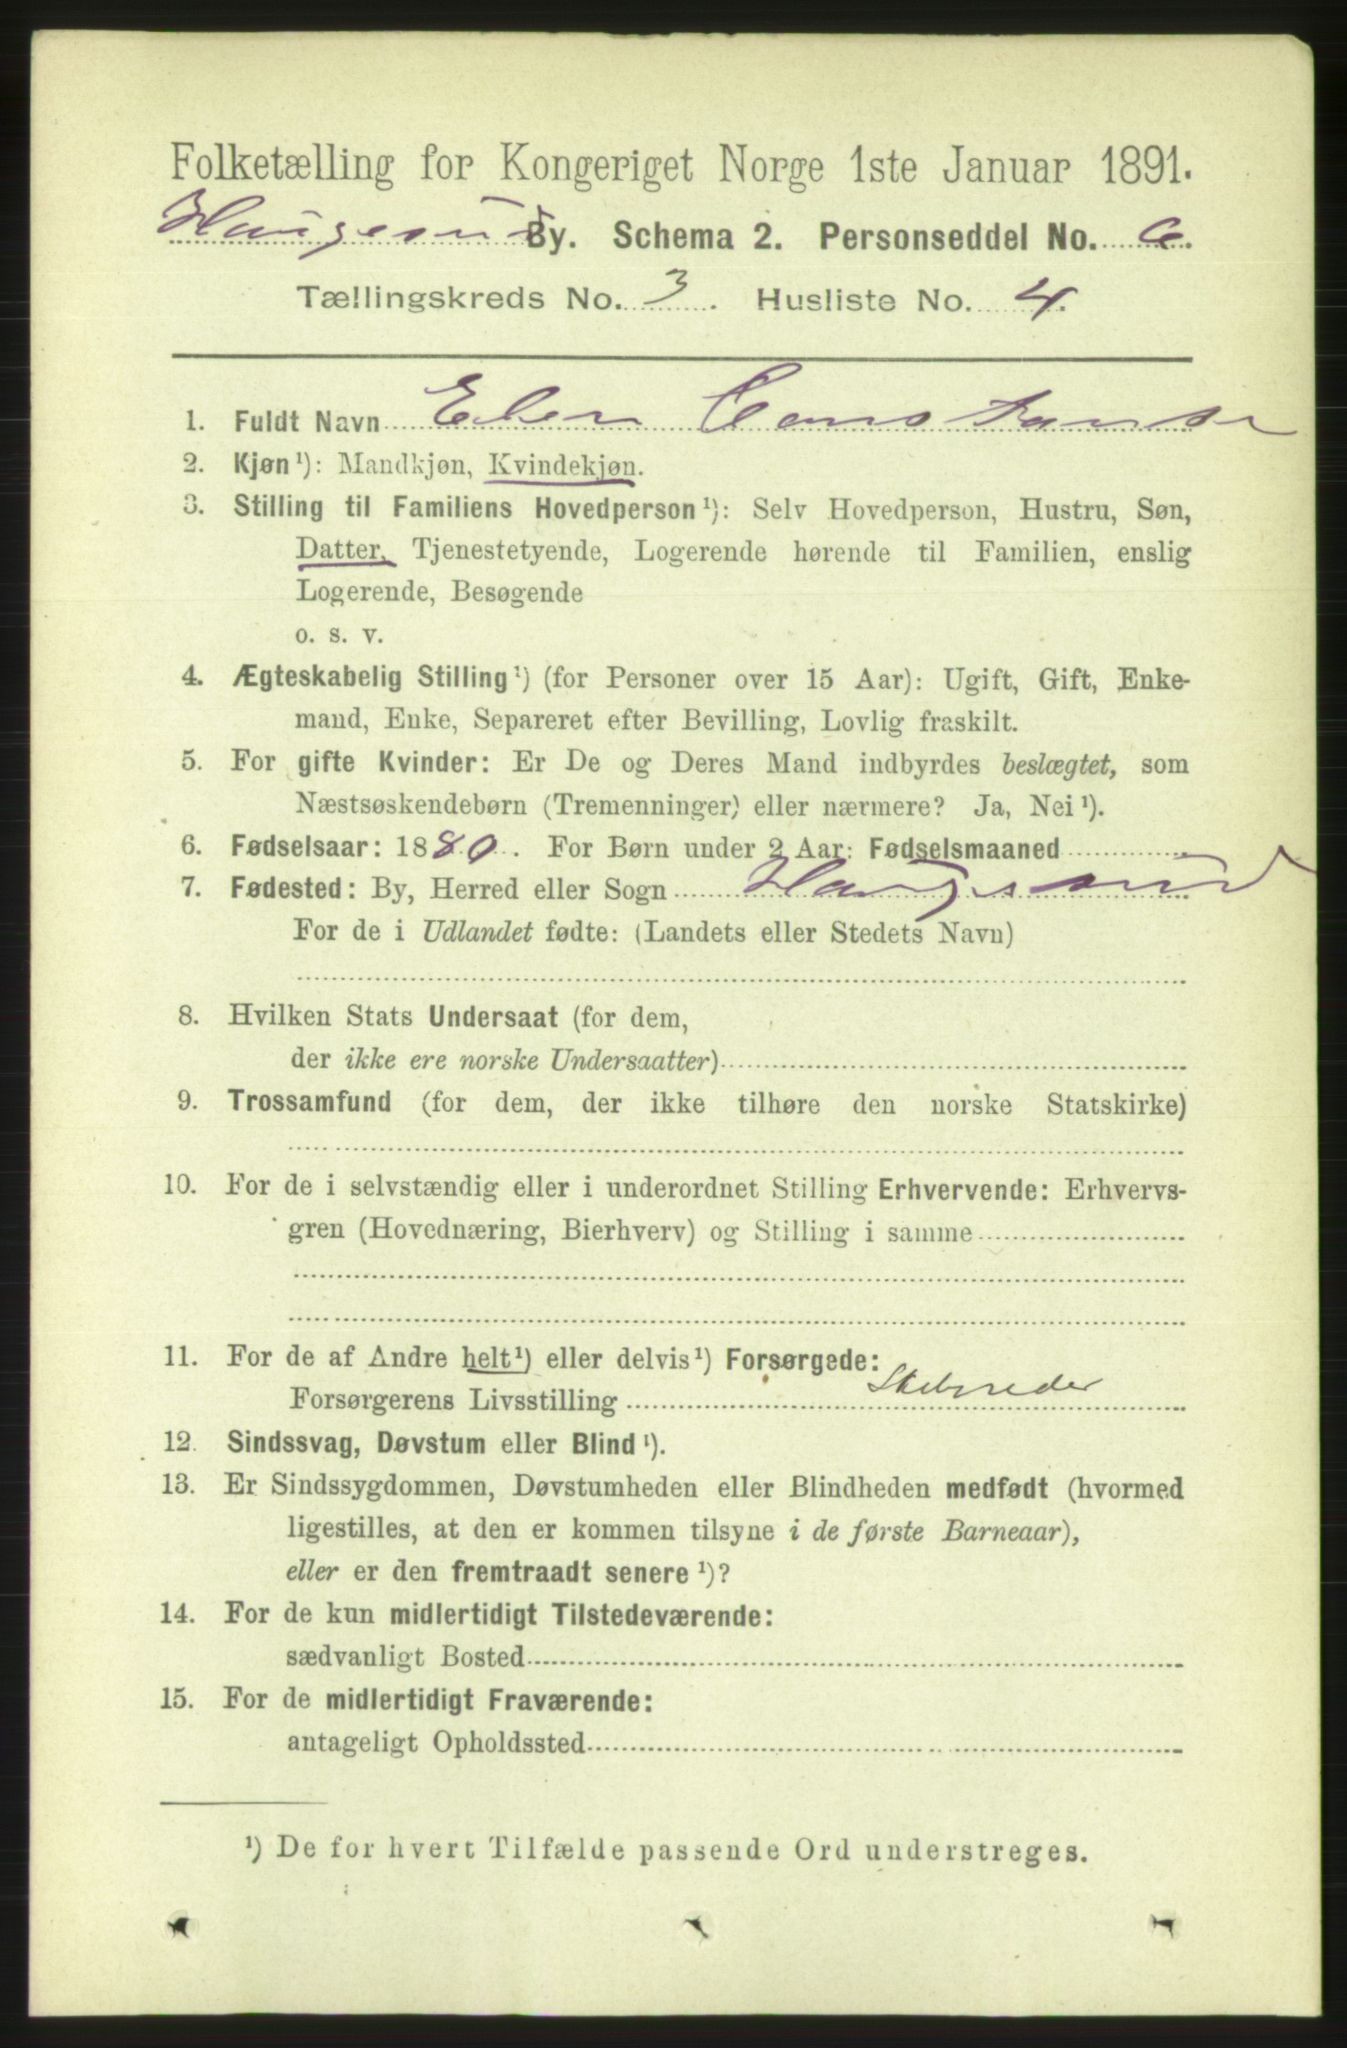 Folketælling for Kongeriget Norge 1ste Januar 1891.
Haugesund By. Schema 2. Personseddel No. 6.
Tællingskreds No. 3. Husliste No. 4.
1. Fuldt Navn Elen
2. Kjøn¹): Mandkjøn, Kvindekjøn.
3. Stilling til Familiens Hovedperson¹): Selv Hovedperson, Hustru, Søn,
Datter, Tjenestetyende, Logerende hørende til Familien, enslig
Logerende, Besøgende
o. s. v.
4. Ægteskabelig Stilling¹) (for Personer over 15 Aar): Ugift, Gift, Enke-
mand, Enke, Separeret efter Bevilling, Lovlig fraskilt.
5. For gifte Kvinder: Er De og Deres Mand indbyrdes beslægtet, som
Næstsøskendebørn (Tremenninger) eller nærmere? Ja, Nei¹).
6. Fødselsaar: 1880. For Børn under 2 Aar: Fødselsmaaned
7. Fødested: By, Herred eller Sogn Haugesund
For de i Udlandet fødte: (Landets eller Stedets Navn)
8. Hvilken Stats Undersaat (for dem,
der ikke ere norske Undersaatter)
9. Trossamfund (for dem, der ikke tilhøre den norske Statskirke)
10. For de i selvstændig eller i underordnet Stilling Erhvervende: Erhvervs-
gren (Hovednæring, Bierhverv) og Stilling i samme
11. For de af Andre helt¹) eller delvis¹) Forsørgede:
Forsørgerens Livsstilling Skibsreder
12. Sindssvag, Døvstum eller Blind¹).
13. Er Sindssygdommen, Døvstumheden eller Blindheden medfødt (hvormed
ligestilles, at den er kommen tilsyne i de første Barneaar),
eller er den fremtraadt senere¹)?
14. For de kun midlertidigt Tilstedeværende:
sædvanligt Bosted
15. For de midlertidigt Fraværende:
antageligt Opholdssted
¹) De for hvert Tilfælde passende Ord understreges.